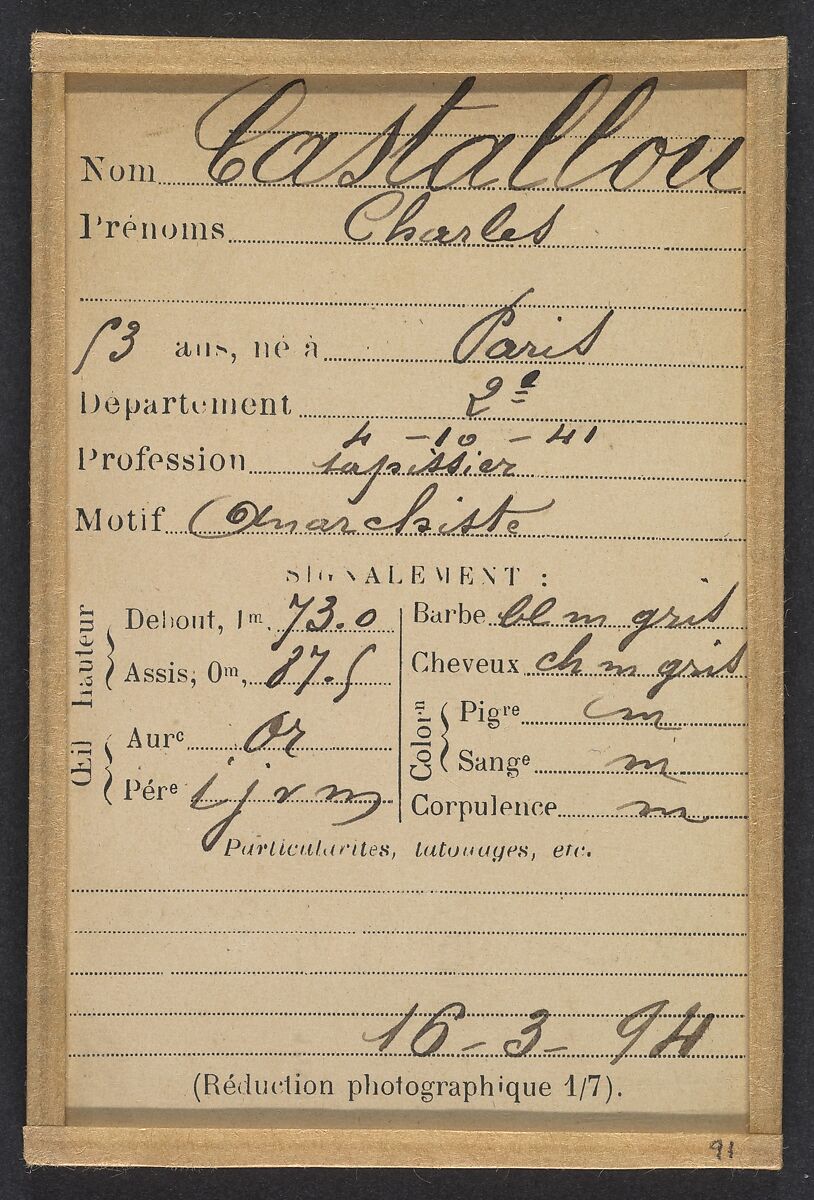 Nom Castallou
Prénoms Charles
53 ans, né à Paris
Département 2e
4-10-41
Profession tapissier
Motif Anarchiste
SIGNALEMENT :
hauteur
Debout, 1m, 73.0
Assis, 0m, 87.5
Œil
Aure or
Pére i j r m
Barbe bl m gris
Cheveux ch m gris
Colorn
Pigre m
Sange m
Corpulence m
Particularités, tatouages, etc.
16-3-94
(Réduction photographique 1/7).
91